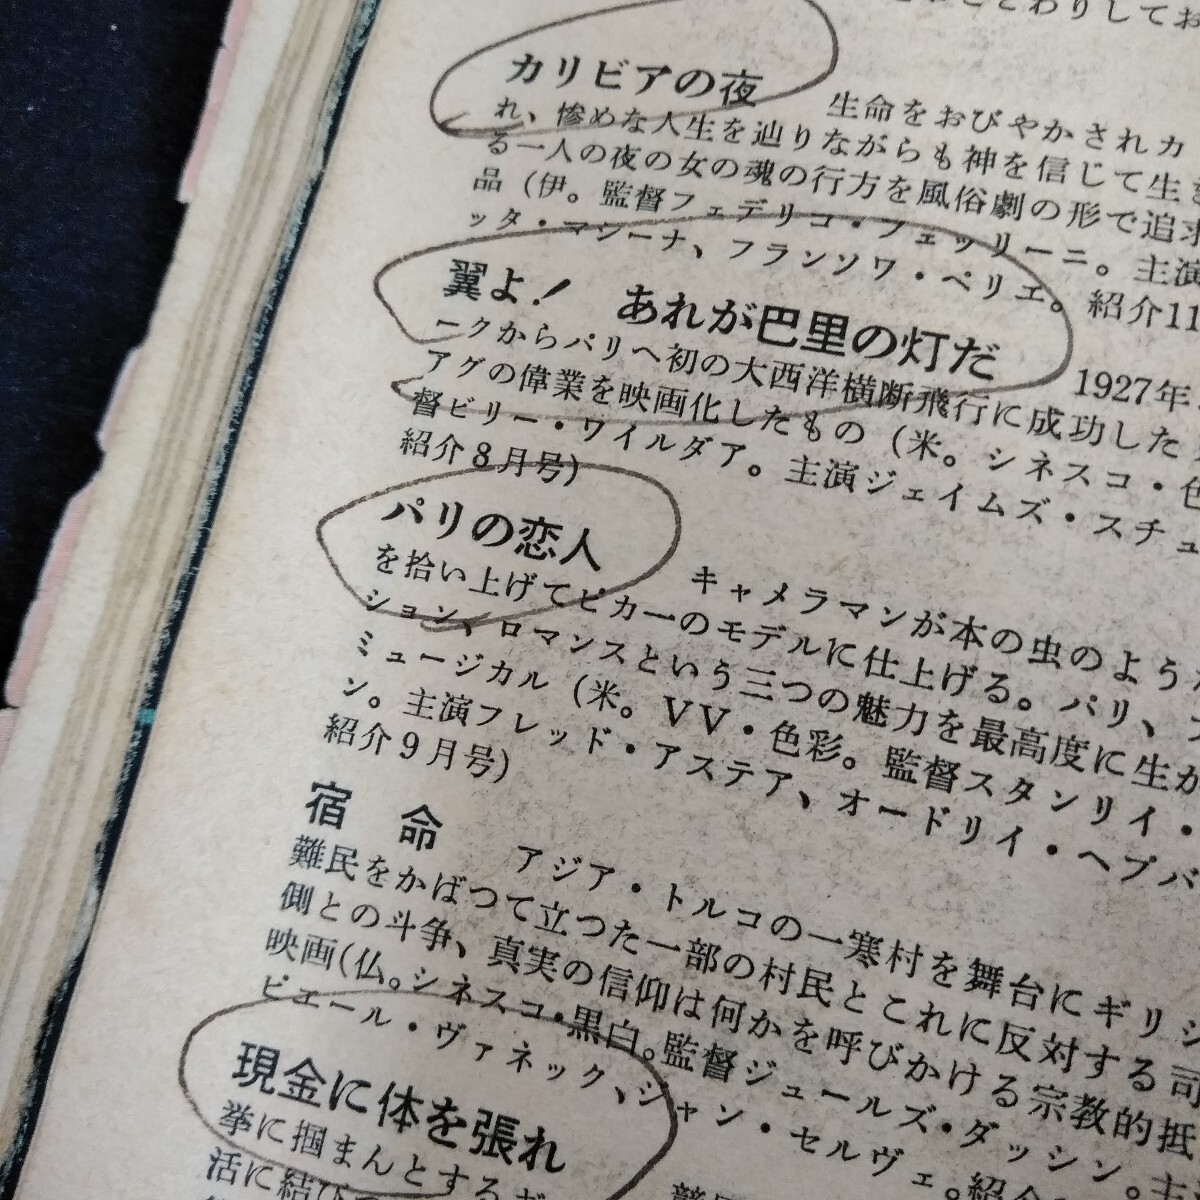 とわりしてお
カリビアの夜　生命をおびやかされカ
れ、惨めな人生を辿りながらも神を信じて生き
る一人の夜の女の魂の行方を風俗劇の形で追求
品（伊。監督フェデリコ・フェッリーニ。主演
ッタ・マシーナ、フランソワ・ペリエ。紹介11
翼よ！　あれが巴里の灯だ　1927年、
ークからパリへ初の大西洋横断飛行に成功した
アグの偉業を映画化したもの（米。シネスコ・色
督ビリー・ワイルダア。主演ジェイムズ・スチュ
紹介8月号）
パリの恋人　キャメラマンが本の虫のような
を拾い上げてピカ一のモデルに仕上げる。パリ、
ション、ロマンスという三つの魅力を最高度に生か
ミュージカル（米。VV・色彩。監督スタンリイ・
ン。主演フレッド・アステア、オードリイ・ヘプバ
紹介9月号）
宿　命　アジア・トルコの一寒村を舞台にギリシ
難民をかばつて立つた一部の村民とこれに反対する司
側との斗争、真実の信仰は何かを呼びかける宗教的抵
映画（仏。シネスコ・黒白。監督ジュールズ・ダッシン。主
ピエール・ヴァネック、ジャン・セルヴェ。紹介
現金に体を張れ
挙に掴まんとするギ
活に結び